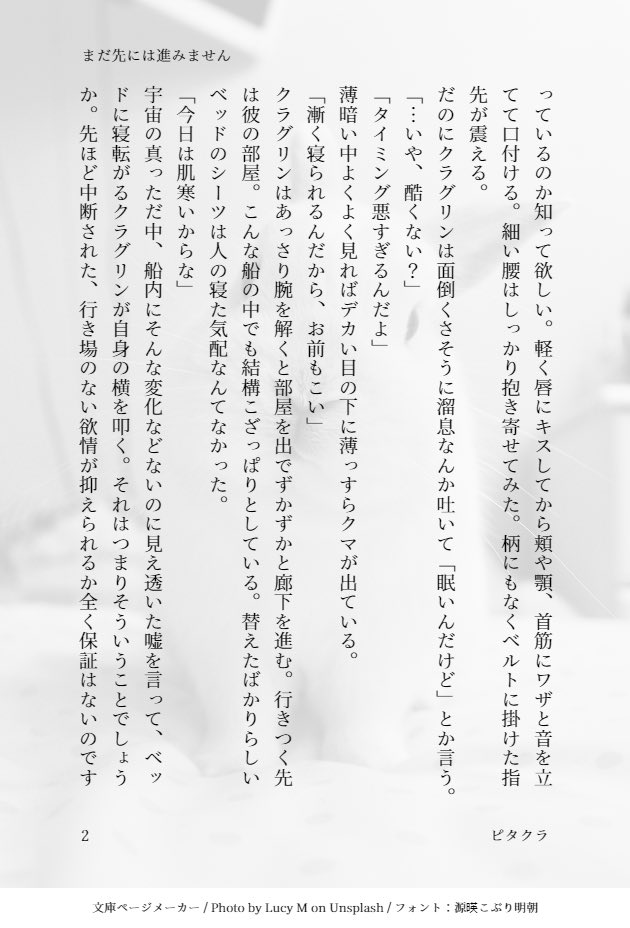 まだ先には進みません
っているのか知って欲しい。軽く唇にキスしてから頬や顎、首筋にワザと音を立
てて口付ける。細い腰はしっかり抱き寄せてみた。柄にもなくベルトに掛けた指
先が震える。
だのにクラグリンは面倒くさそうに溜息なんか吐いて「眠いんだけど」とか言う。
「…いや、酷くない？」
「タイミング悪すぎるんだよ」
薄暗い中よくよく見ればデカい目の下に薄っすらクマが出ている。
「漸く寝られるんだから、お前もこい」
クラグリンはあっさり腕を解くと部屋を出でずかずかと廊下を進む。行きつく先
は彼の部屋。こんな船の中でも結構こざっぱりとしている。替えたばかりらしい
ベッドのシーツは人の寝た気配なんてなかった。
「今日は肌寒いからな」
宇宙の真っただ中、船内にそんな変化などないのに見え透いた嘘を言って、ベッ
ドに寝転がるクラグリンが自身の横を叩く。それはつまりそういうことでしょう
か。先ほど中断された、行き場のない欲情が抑えられるか全く保証はないのです
2
ピタクラ
文庫ページメーカー / Photo by Lucy M on Unsplash / フォント：源暎こぶり明朝